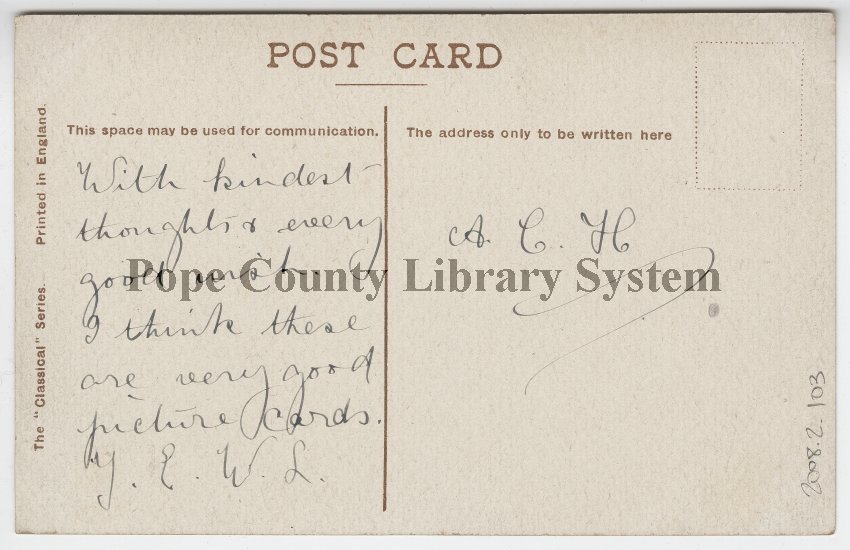 POST CARD
This space may be used for communication.
The address only to be written here
With kindest
thoughts & every
good wish.
I think these
are very good
picture cards.
Y. E. W. L.
A. C. H
Pope County Library System
The "Classical" Series. Printed in England.
2008.2.103